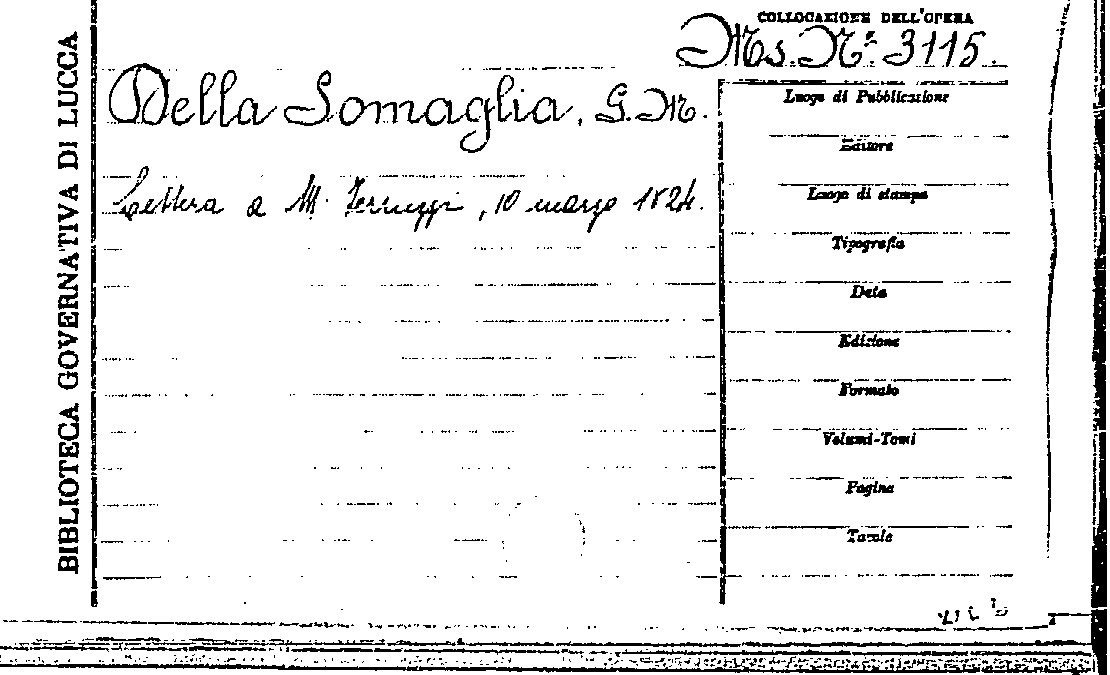 BIBLIOTECA GOVERNATIVA DI LUCCA
COLLOCAZIONE DELL'OPERA
Ms. Nº 3115.
Della Somaglia, G. M.
Lettera a M. Ferruzzi, 10 marzo 1824.
Luogo di Pubblicazione
Editore
Luogo di stampa
Tipografia
Data
Edizione
Formato
Volumi-Tomi
Pagine
Tavole